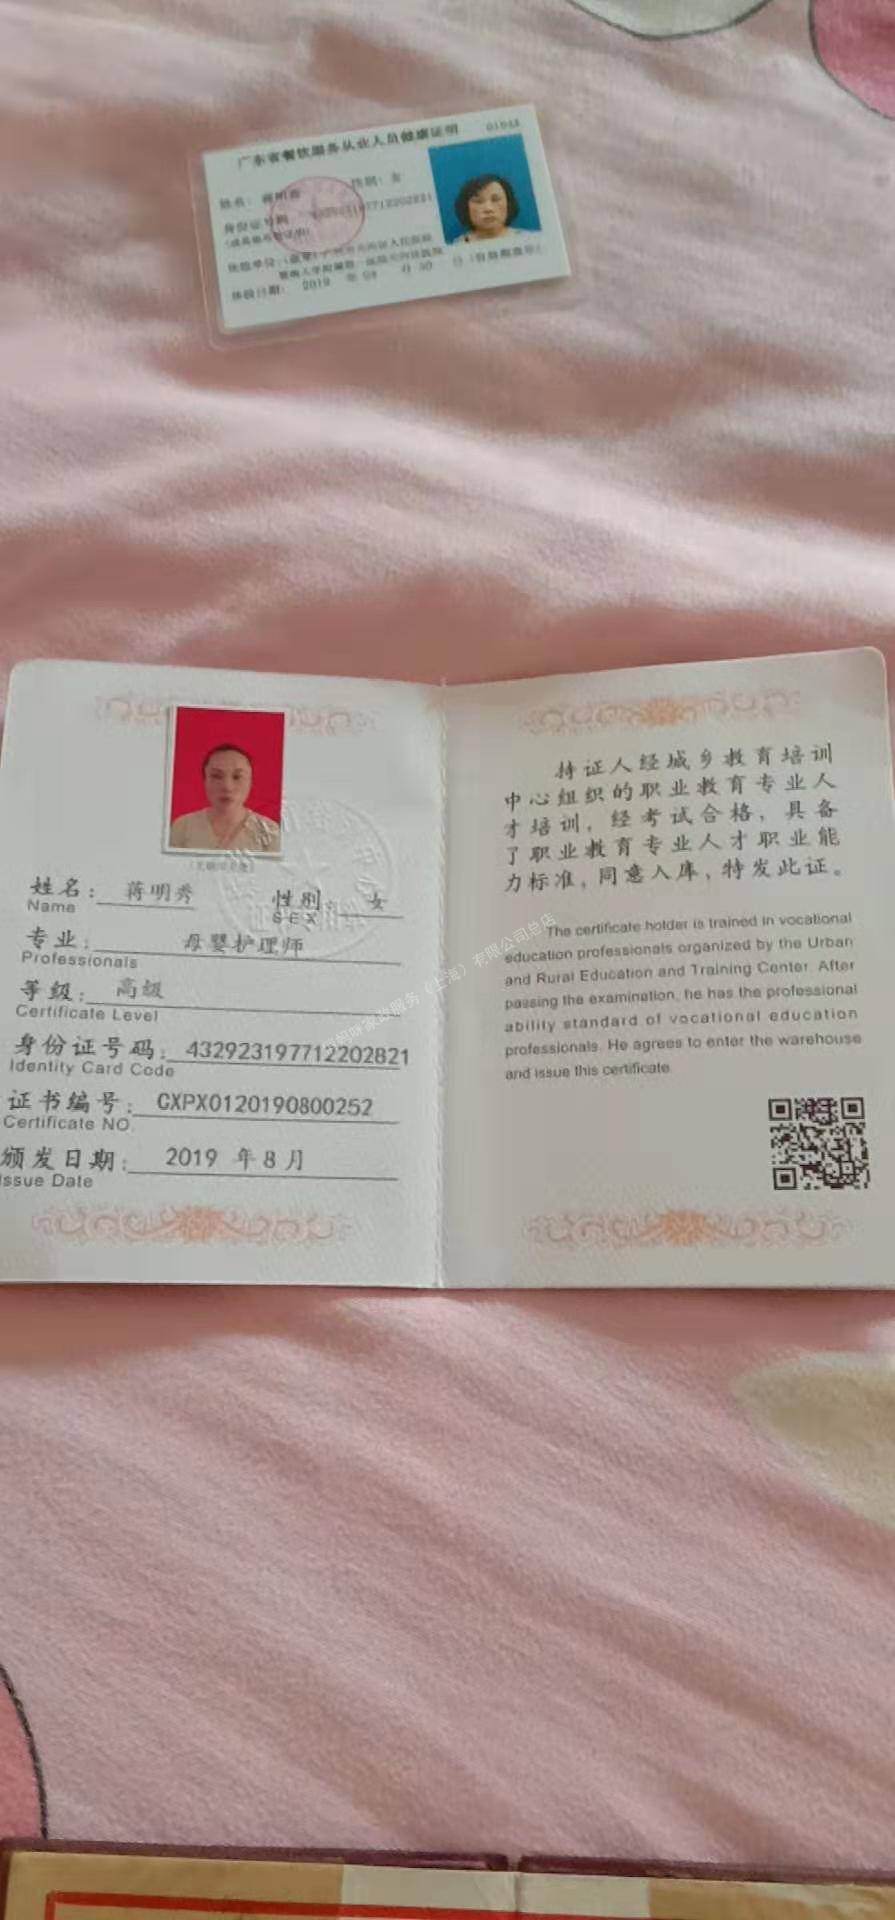 广东省餐饮服务从业人员健康证明
姓名：
性别：女
身份证号码
体检日期： 2019 年 04 月 30 日
持证人经城乡教育培训
中心组织的职业教育专业人
才培训，经考试合格，具备
了职业教育专业人才职业能
力标准，同意入库，特发此证。
The certificate holder is trained in vocational
education professionals organized by the Urban
and Rural Education and Training Center. After
passing the examination, he has the professional
ability standard of vocational education
professionals. He agrees to enter the warehouse
and issue this certificate.
姓名：蒋明秀 性别：女
Name SEX
专业：母婴护理师
Professionals
等级：高级
Certificate Level
身份证号码：432923197712202821
Identity Card Code
证书编号：CXPX0120190800252
Certificate NO.
颁发日期：2019 年 8 月
Issue Date